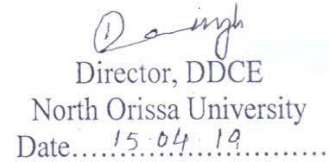 Director, DDCE
North Orissa University
Date.....15.04.19....................